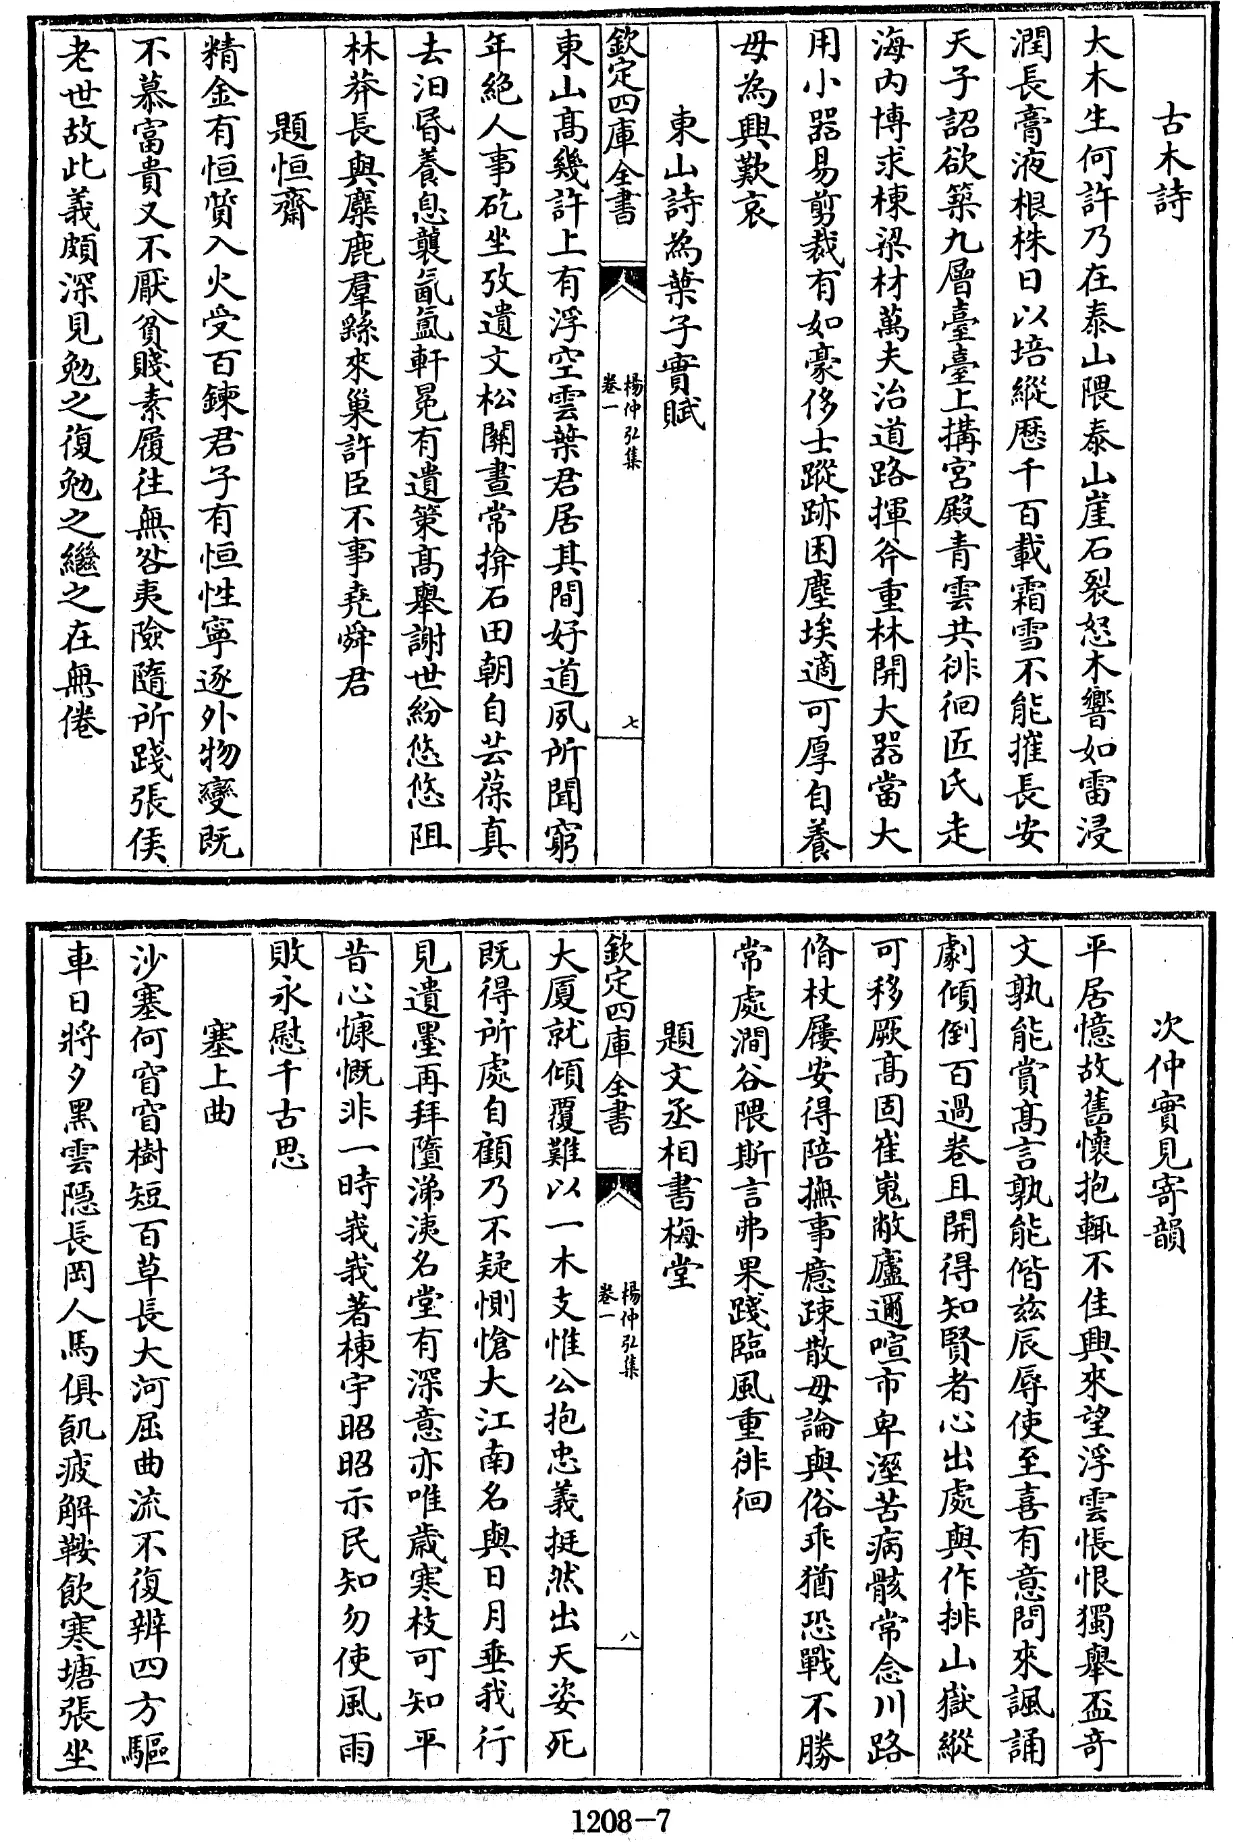 古木詩
大木生何許乃在泰山隈泰山崖石裂怒木響如雷浸
潤長膏液根株日以培縱歷千百載霜雪不能摧長安
天子詔欲築九層臺臺上搆宮殿青雲共徘徊匠氏走
海内博求棟梁材萬夫治道路揮斧重林開大器當大
用小器易剪裁有如豪侈士蹤跡困塵埃適可厚自養
毋為興歎哀
東山詩為葉子實賦
欽定四庫全書
楊仲弘集
卷一
七
東山髙幾許上有浮空雲葉君居其間好道夙所聞窮
年絶人事矻坐攷遺文松關晝常揜石田朝自芸葆真
去汨昬養息襲氤氲軒冕有遺策髙舉謝世紛悠悠阻
林莽長與麋鹿羣繇來巢許臣不事堯舜君
題恒齋
精金有恒質入火受百鍊君子有恒性寧逐外物變既
不慕富貴又不厭貧賤素履往無咎夷險隨所踐張侯
老世故此義頗深見勉之復勉之繼之在無倦
次仲實見寄韻
平居憶故舊懷抱輙不佳興來望浮雲悵恨獨舉盃奇
文孰能賞髙言孰能偕兹辰辱使至喜有意問來諷誦
劇傾倒百過卷且開得知賢者心出處與作排山嶽縱
可移厥髙固崔嵬敝廬邇喧市卑溼苦病骸常念川路
脩杖屨安得陪撫事意疎散毋論與俗乖猶恐戰不勝
常處澗谷隈斯言弗果踐臨風重徘徊
題文丞相書梅堂
欽定四庫全書
楊仲弘集
卷一
八
大厦就傾覆難以一木支惟公抱忠義挺然出天姿死
既得所處自顧乃不疑惻愴大江南名與日月垂我行
見遺墨再拜墮涕洟名堂有深意亦唯歲寒枝可知平
昔心慷慨非一時峩峩著棟宇昭昭示民知勿使風雨
敗永慰千古思
塞上曲
沙塞何窅窅樹短百草長大河屈曲流不復辨四方驅
車日將夕黑雲隱長岡人馬俱飢疲解鞍飲寒塘張坐
1208-7